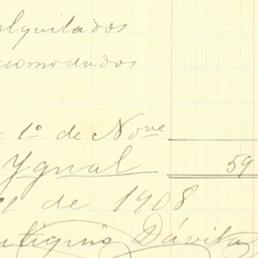 alquilados
acomodados
1º de Nove
Ygual 59
de 1908
Dávila